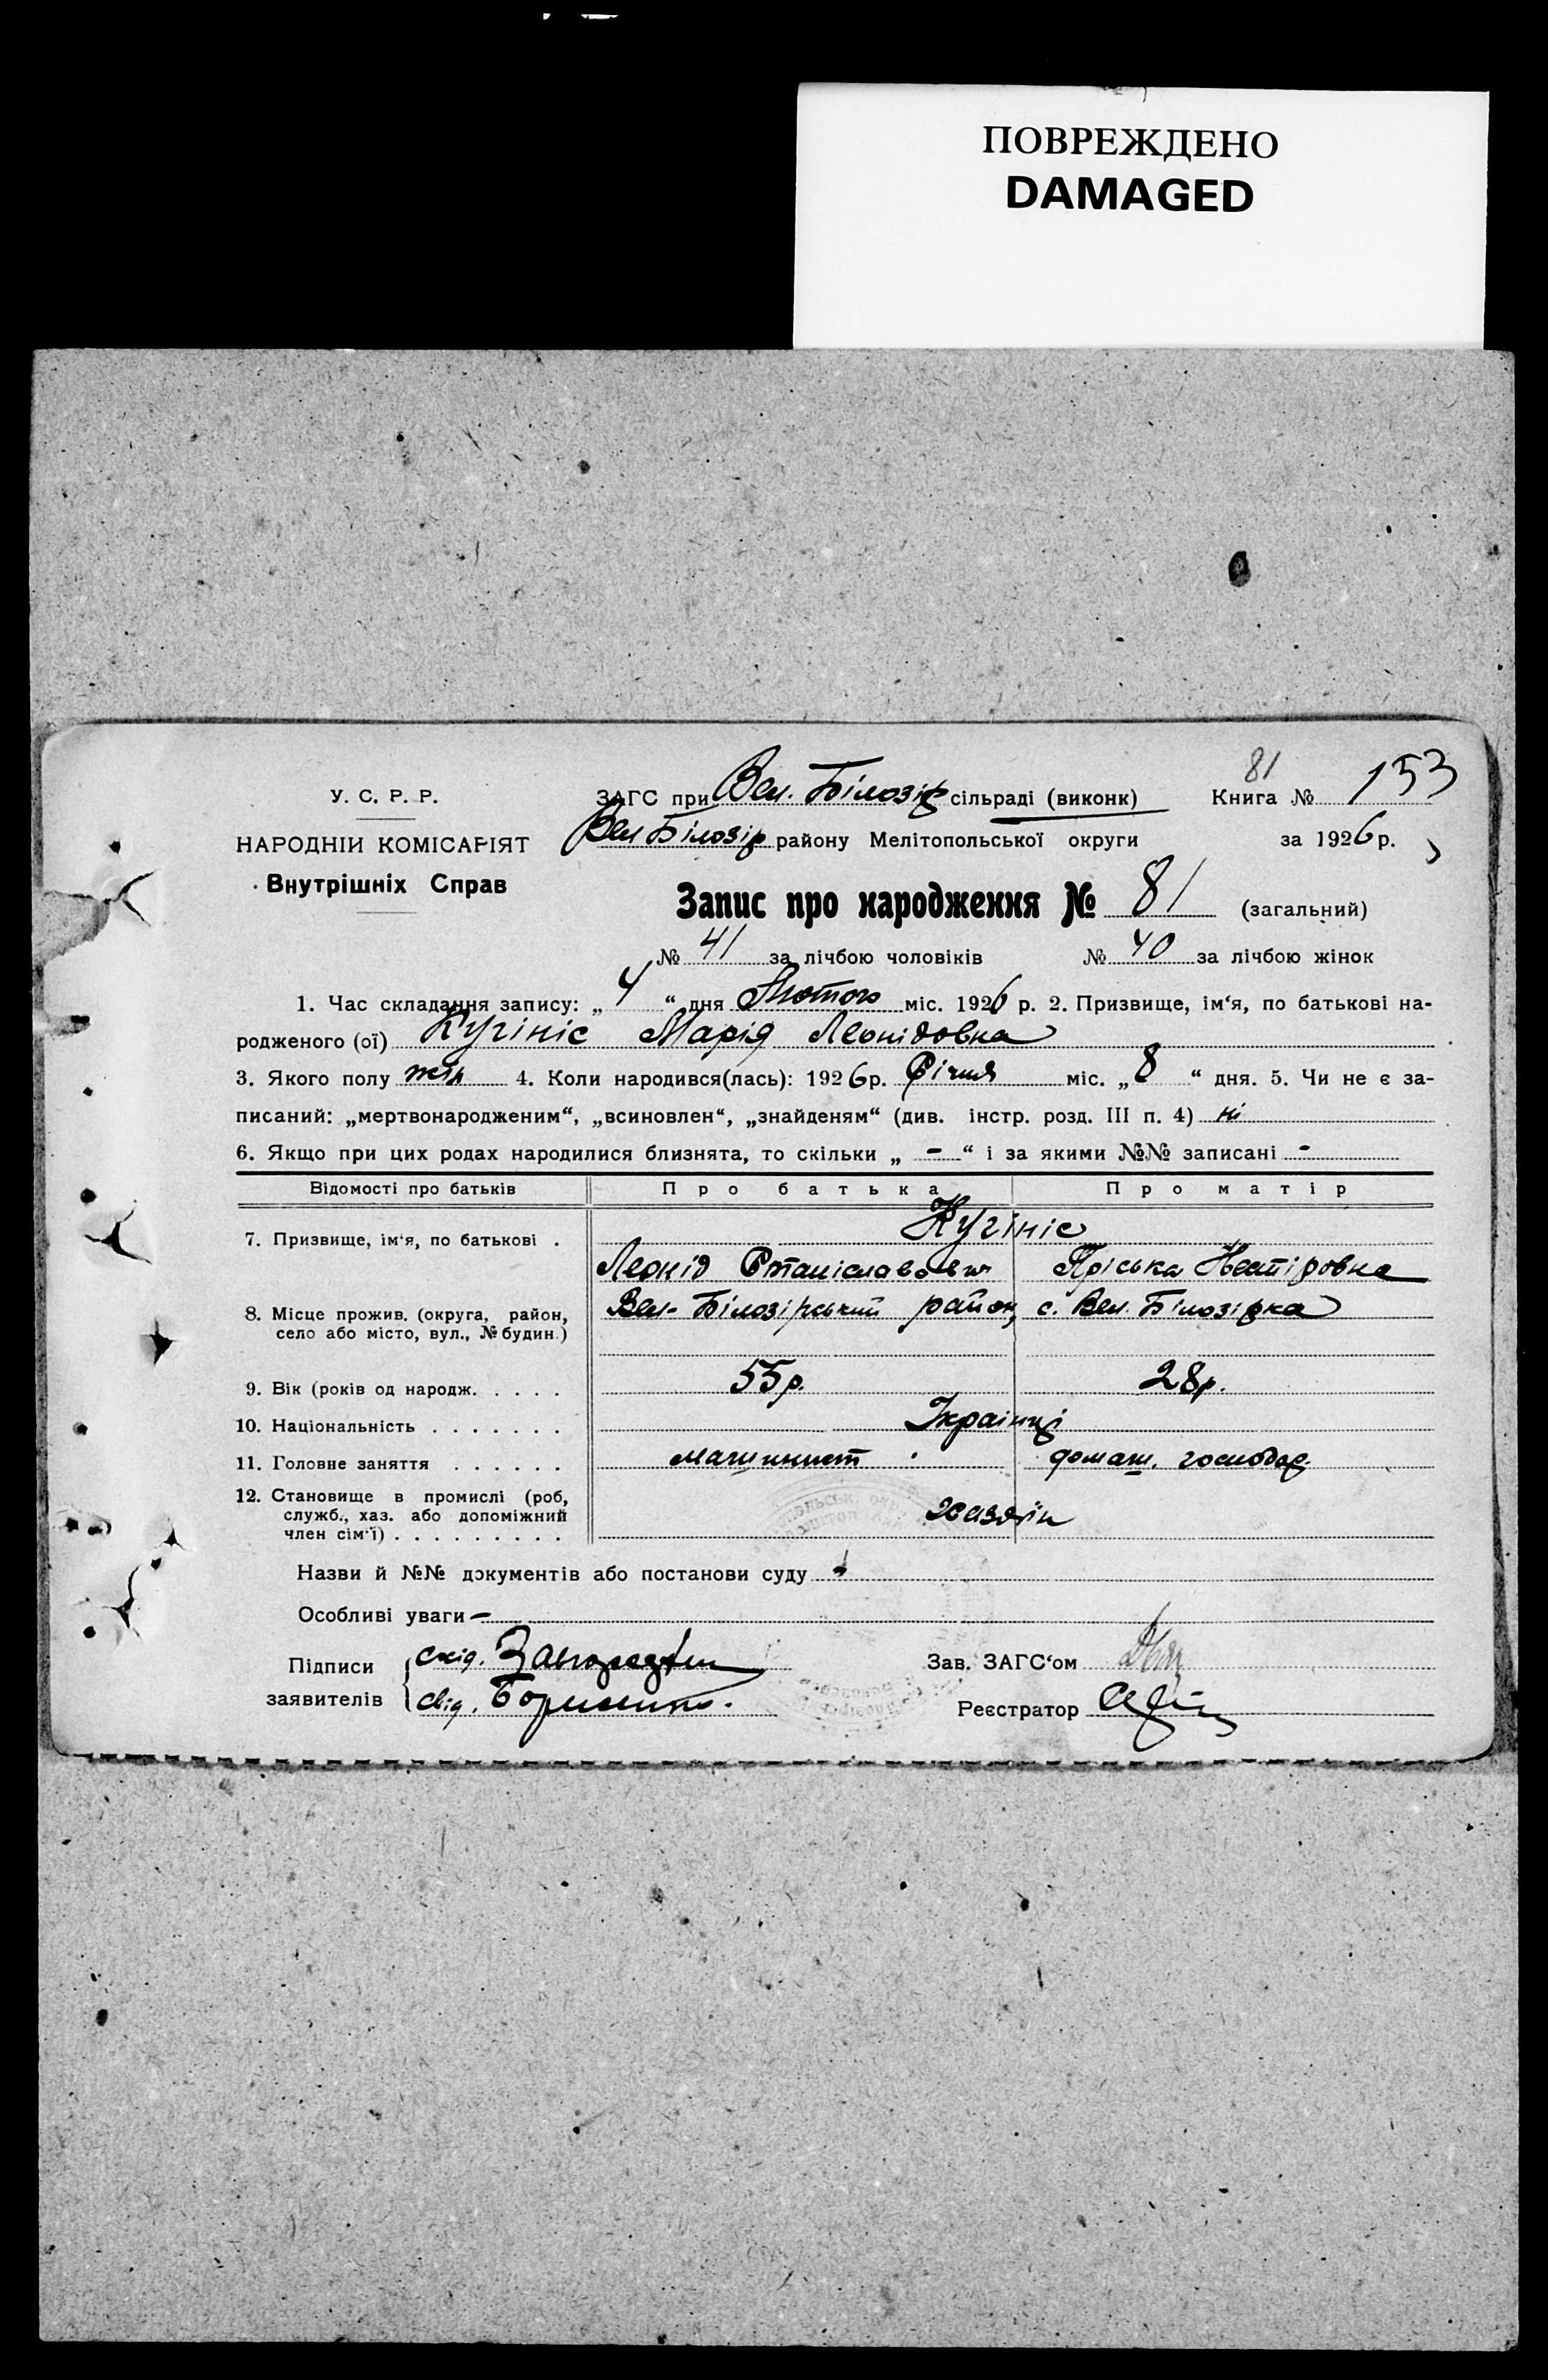 ПОВРЕЖДЕНО
DAMAGED
81
153
У. С. Р. Р.
ЗАГС при Вел. Білозір сільраді (виконк)
Книга №
НАРОДНІЙ КОМІСАРІЯТ
Вел Білозір району Мелітопольської округи
за 1926 р.
Внутрішніх Справ
Запис про народження № 81 (загальний)
№ 41 за лічбою чоловіків № 40 за лічбою жінок
1. Час складання запису: „ 4 “ дня Лютого міс. 1926 р. 2. Призвище, ім‘я, по батькові на-
родженого (ої) Кугініс Марія Леонідовна
3. Якого полу жін 4. Коли народився(лась): 1926 р. Січня міс. „ 8 “ дня. 5. Чи не є за-
писаний: „мертвонародженим“, „всиновлен“, „знайденям“ (див. інстр. розд. III п. 4) ні
6. Якщо при цих родах народилися близнята, то скільки „ - “ і за якими №№ записані -
Відомості про батьків Про батька Про матір
7. Призвище, ім‘я, по батькові . Кугініс
Леонід Станіславович Пріська
8. Місце прожив. (округа, район, село або місто, вул., № будин.) Вел-Білозірський район, с. Вел. Білозірка
9. Вік (років од народж. . . . . 55р. 28р.
10. Національність . . . . . . . Українці
11. Головне заняття . . . . . . машинист домаш. господар.
12. Становище в промислі (роб, служб., хаз. або допоміжний член сім‘ї) . . . . . . . . . хазяїн
Назви й №№ документів або постанови суду
Особливі уваги -
Підписи
заявителів
Зав. ЗАГС‘ом
Реєстратор